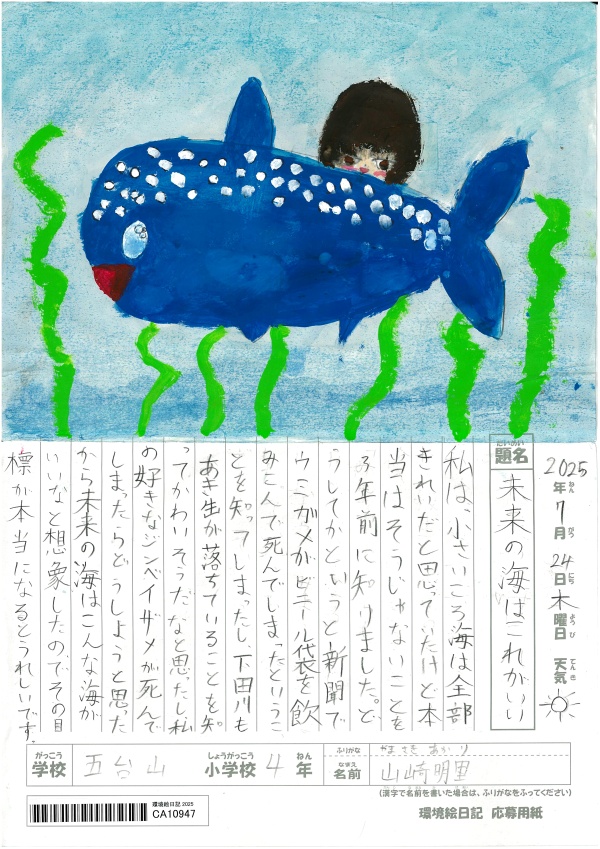 2025年7月24日木曜日 天気
ねん がつ にち ようび てんき
だいめい
題名 未来の海はこれがいい
私は、小さいころ海は全部
きれいだと思っていたけど本
当はそうじゃないことを
3年前に知けました。ど
うしてかというと新聞で
ウミガメがビニール袋を飲
みこんで死んでしまったというこ
とを知ってしまったし下田川も
あき生が落ちていることを知
ってかわいそうだなと思たし私
の好きなジンベイザメが死んで
しまったらどうしようと思った
から未来の海はこんな海が
いいなと想象したのでその目
標が本当になるとうれしいです。
がっこう しょうがっこう ねん
学校 五台山 小学校 4年
ふりがな やまさきあかり
なまえ
名前 山崎明里
(漢字で名前を書いた場合は、ふりがなをふってください)
環境絵日記 2025
CA10947
環境絵日記 応募用紙